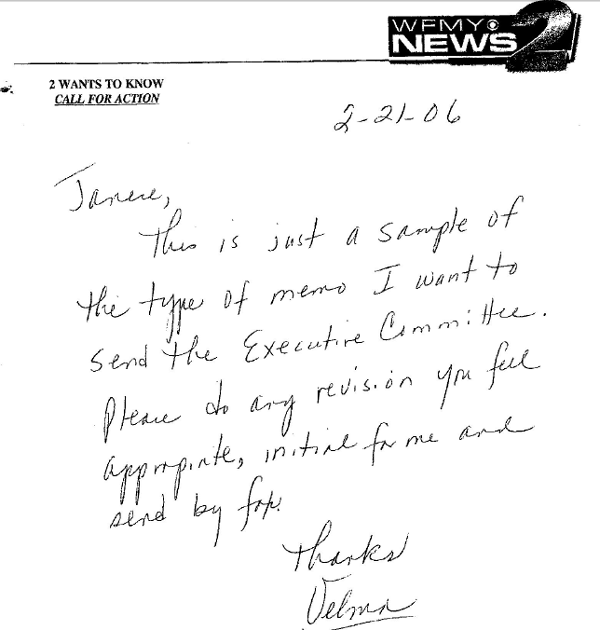 WFMY NEWS 2
2 WANTS TO KNOW
CALL FOR ACTION
2-21-06
This is just a sample of
the type of memo I want to
send the Executive Committee.
Please do any revision you feel
appropirte, initial for me and
send by fax.
Thanks
Velma